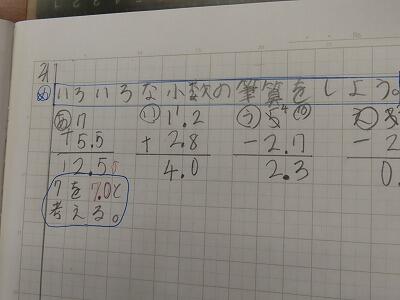 め いろいろな小数の筆算をしよう。
あ 7 い 1.2 う 5 4 10 え
+5.5 +2.8 -2.7 -2
12.5 4.0 2.3 0.
7を7.0と
考える。